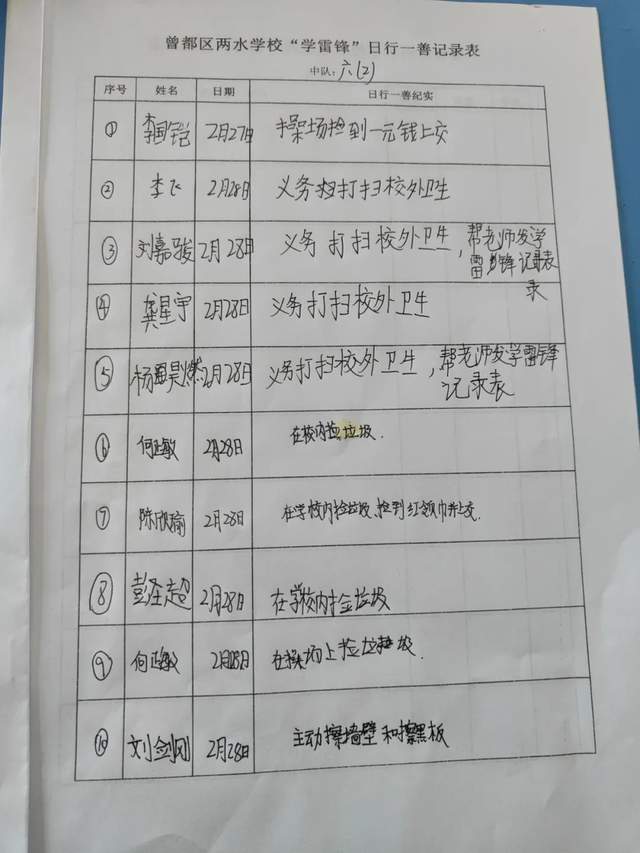 曾都区两水学校“学雷锋”日行一善记录表
中队：六(2)
序号 姓名 日期 日行一善纪实
① 李国铠 2月27日 操场捡到一元钱上交
② 李飞 2月28日 义务打扫校外卫生
③ 刘嘉骏 2月28日 义务打扫校外卫生，帮老师发学
雷锋记录表
录
④ 龚星宇 2月28日 义务打扫校外卫生
⑤ 杨昊燃 2月28日 义务打扫校外卫生，帮老师发学雷锋
记录表
⑥ 何政敏 2月28日 在校内捡垃圾.
⑦ 陈欣瑜 2月28日 在学校内捡垃圾、捡到红领巾并上交.
⑧ 彭圣超 2月28日 在学校内捡垃圾
⑨ 何政敏 2月28日 在操场上捡垃圾.
⑩ 刘剑刚 2月28日 主动擦墙壁和擦黑板